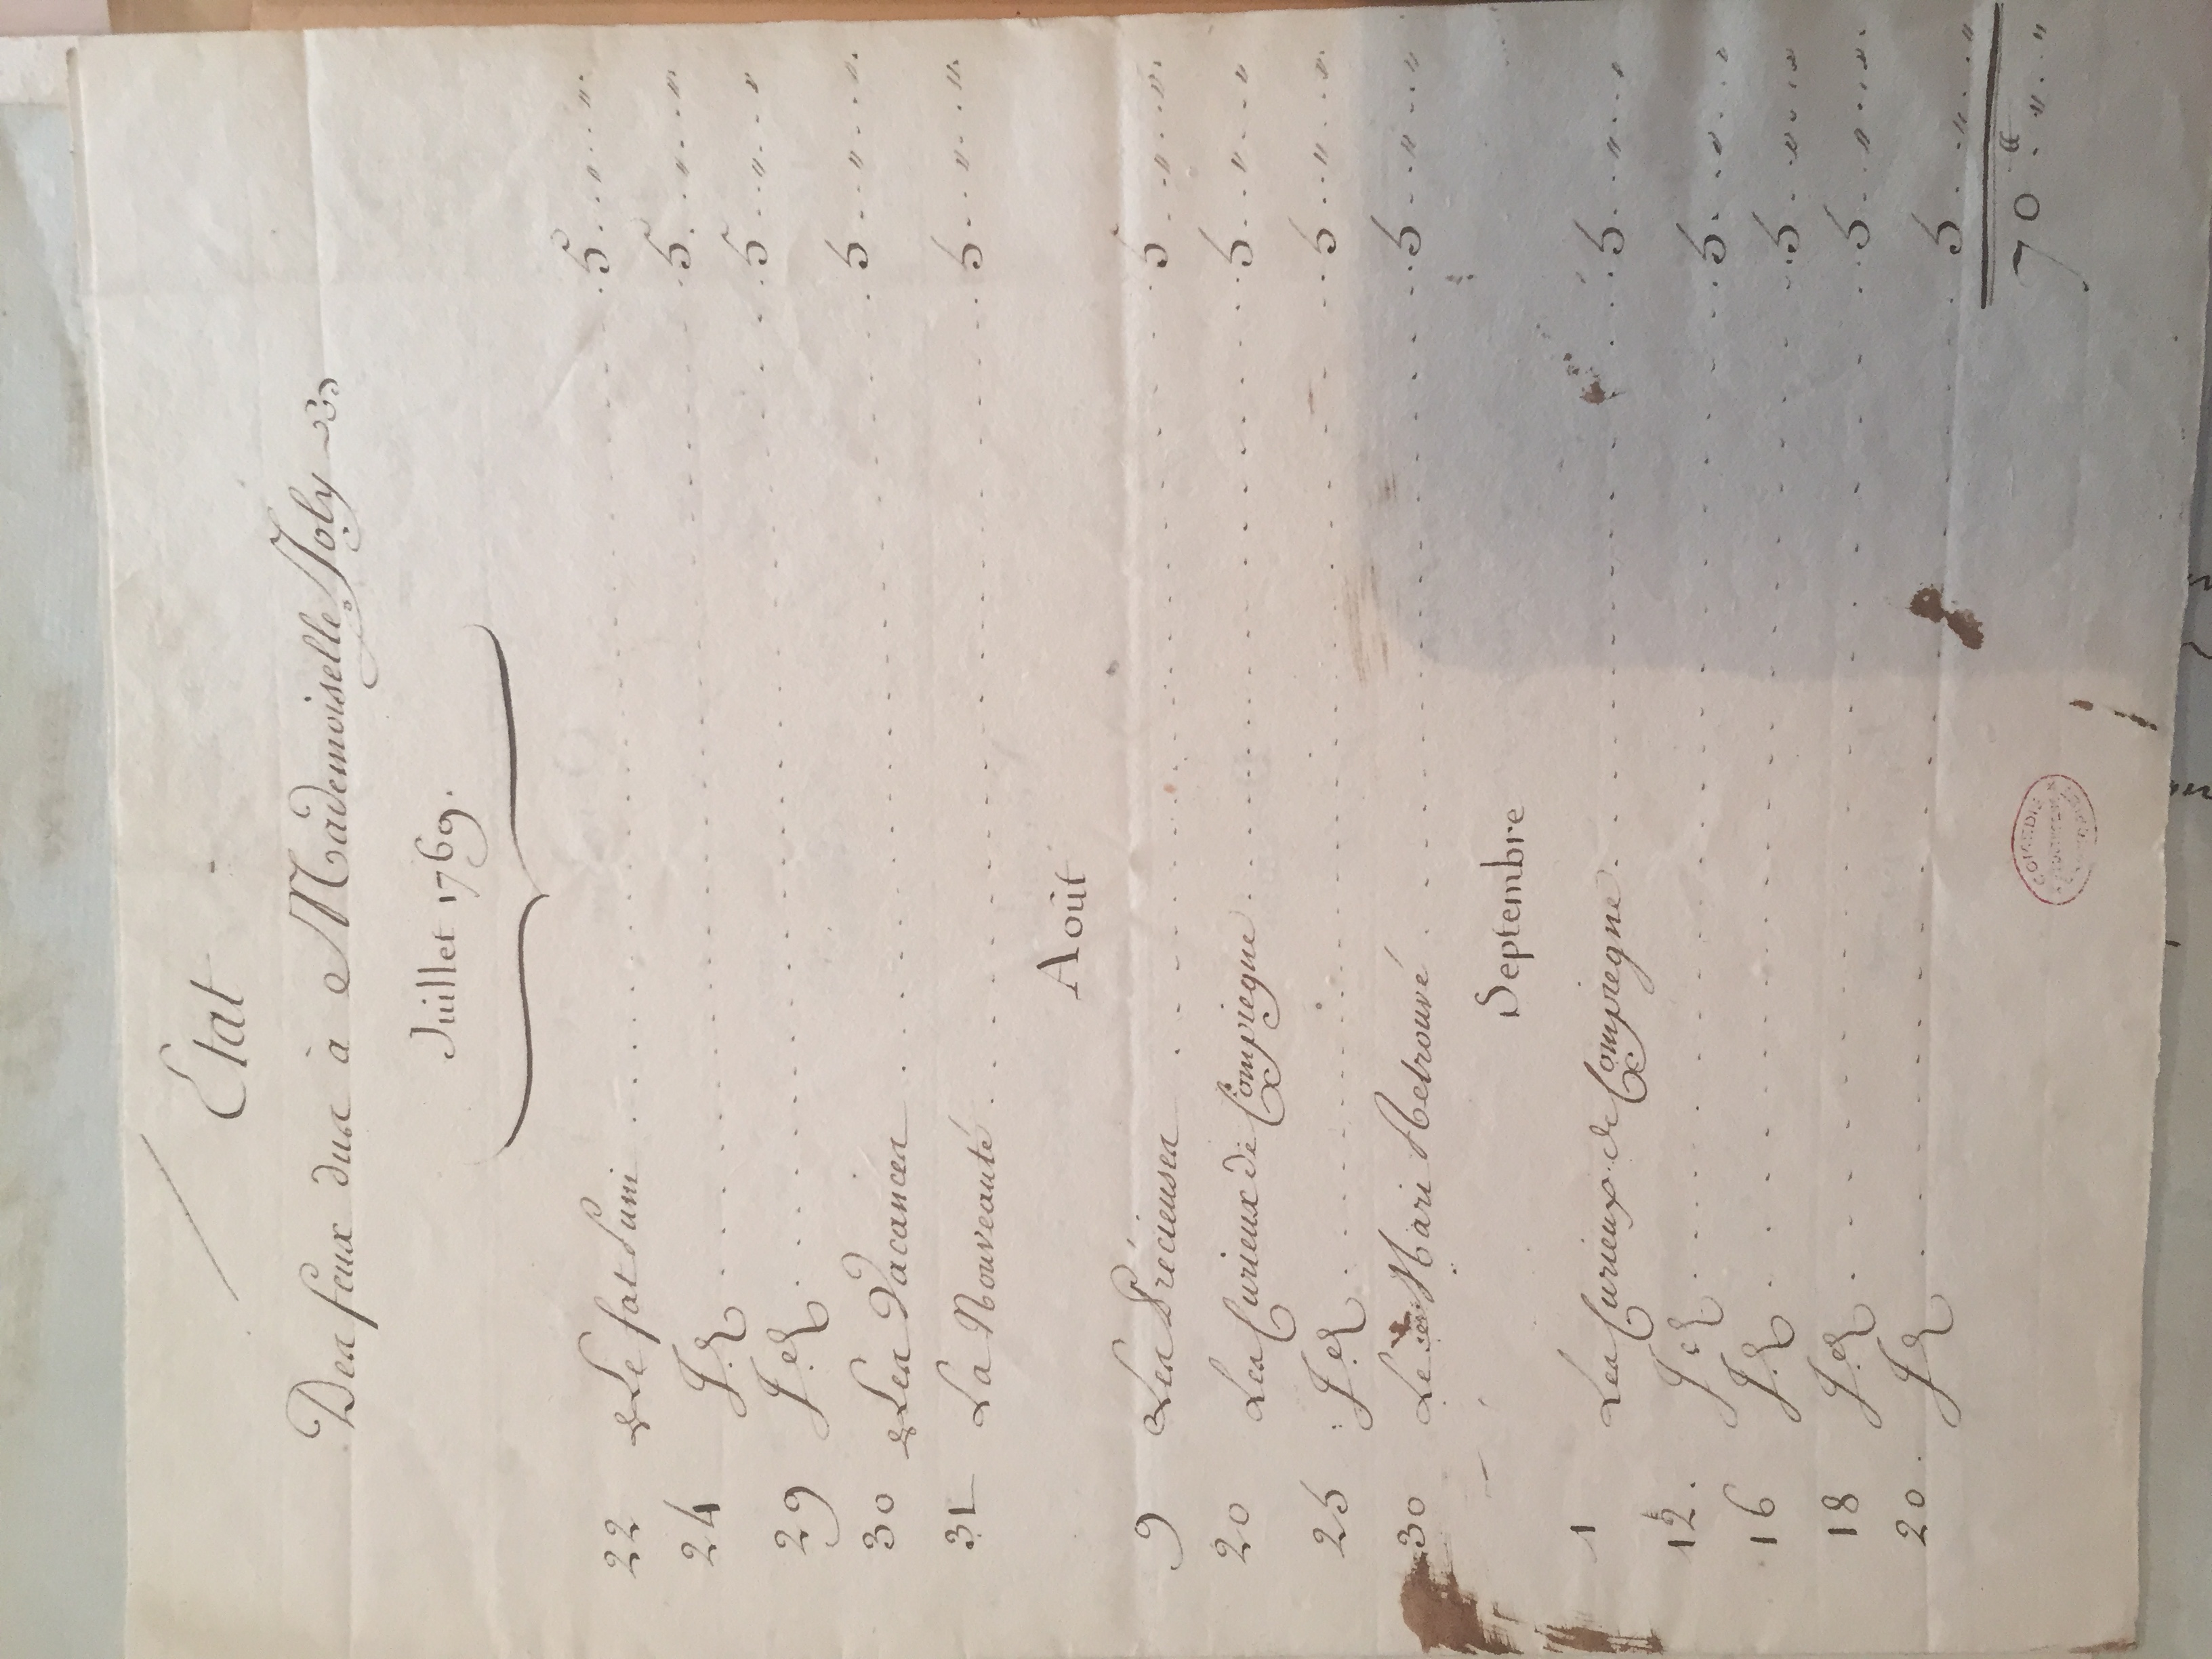 Etat
Des feux dus à Mademoiselle Joly
Juillet 1769.
22 Le fat Puni . . . . . 5 . . „ . . „
24 Id . . . . . 5 . . „ . . „
29 Id . . . . . 5 . . „ . . „
30 Les Vacances . . . . . 5 . . „ . . „
31 La Nouveauté . . . . . 5 . . „ . . „
Août
9 Les Précieuses . . . . . 5 . . „ . . „
20 Les Curieux de Compiegne . . . . . 5 . . „ . . „
25 Id . . . . . 5 . . „ . . „
30 Le Mari Retrouvé . . . . . 5 . . „ . . „
Septembre
1 Les Curieux de Compiegne . . . . . 5 . . „ . . „
12. Id . . . . . 5 . . „ . . „
16 Id . . . . . 5 . . „ . . „
18 Id . . . . . 5 . . „ . . „
20. Id . . . . . 5 . . „ . . „
70 ₶ . „ . . „
COMEDIE